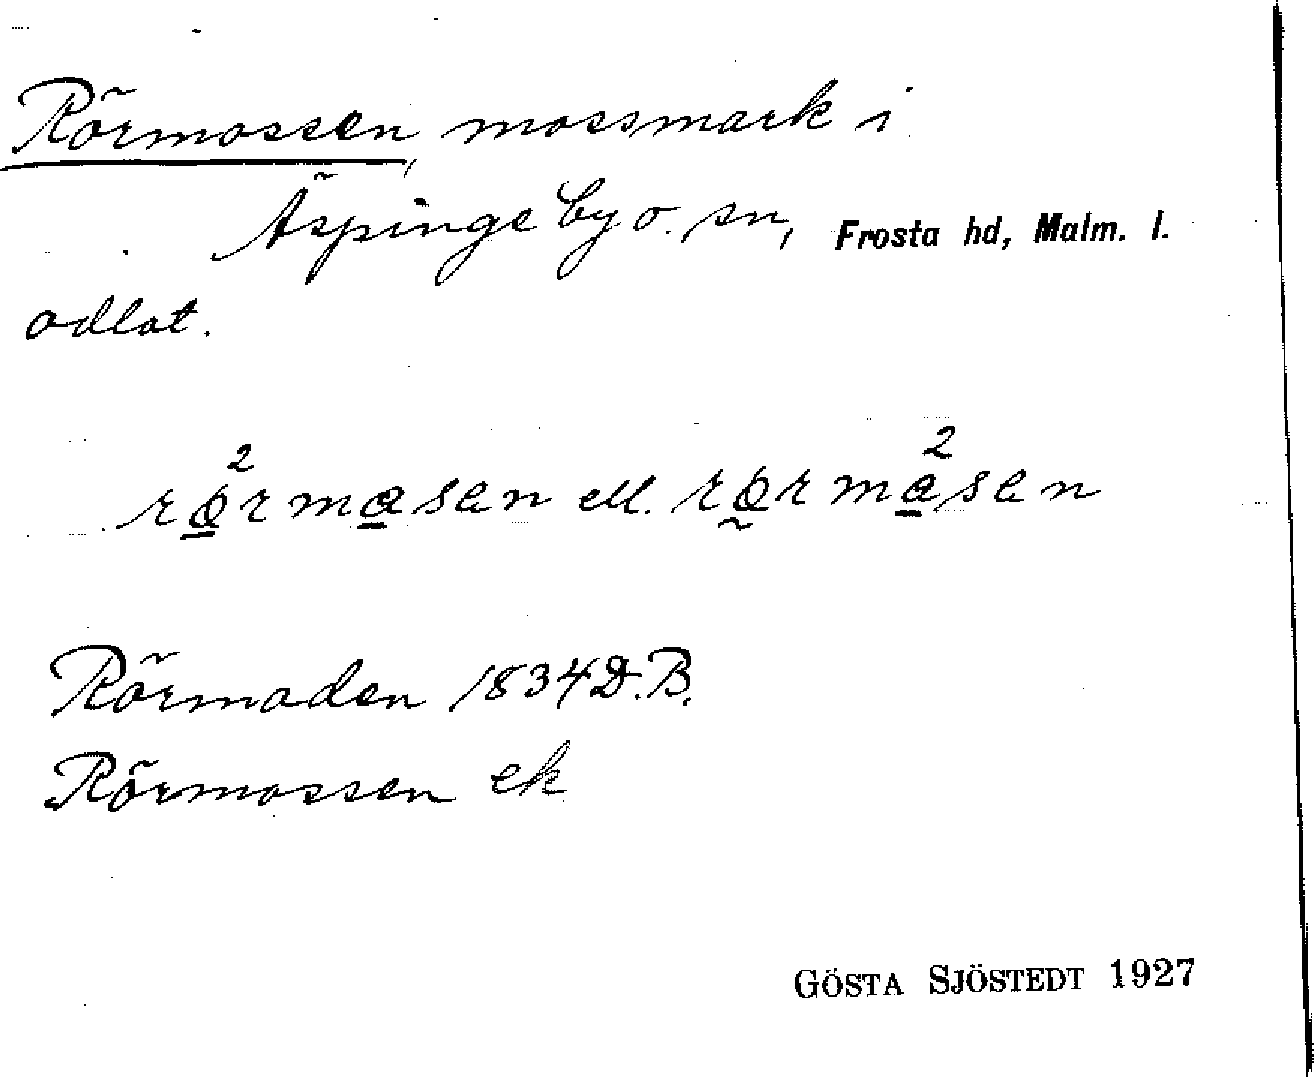 Rörmossen, mossmark i
Äspinge by o. sn, Frosta hd, Malm. l.
odlat.
rø̱²rma̱sen ell. rø̰rma̱²sen
Rörmaden 1834 D.B.
Rörmossen ek
GÖSTA SJÖSTEDT 1927